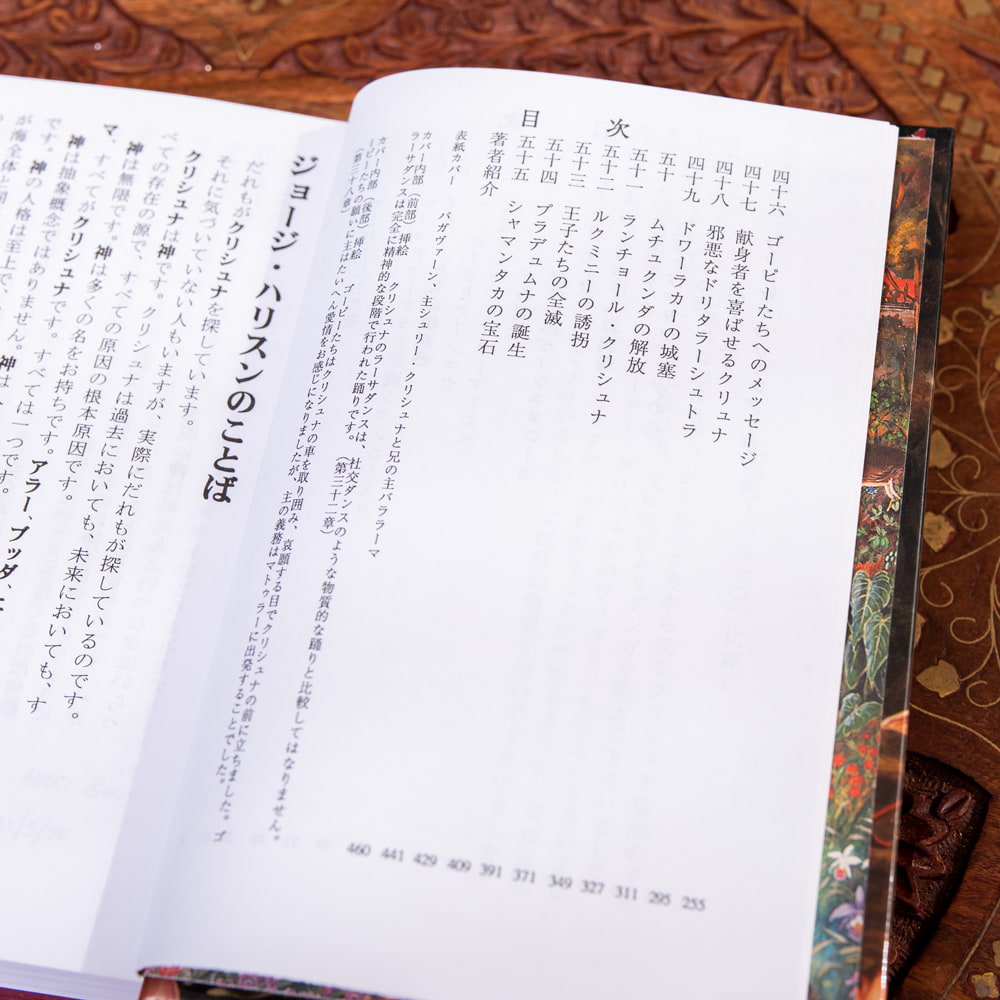 目次
四十六　ゴーピーたちへのメッセージ　255
四十七　献身者を喜ばせるクリュナ　295
四十八　邪悪なドリタラーシュトラ　311
四十九　ドワーラカーの城塞　327
五十　ムチュクンダの解放　349
五十一　ランチョール・クリシュナ　371
五十二　ルクミニーの誘拐　391
五十三　王子たちの全滅　409
五十四　プラデュムナの誕生　429
五十五　シャマンタカの宝石　441
著者紹介　460
表紙カバー　バガヴァーン、主シュリー・クリシュナと兄の主バララーマ
カバー内部（前部）挿絵　クリシュナのラーサダンスは、社交ダンスのような物質的な踊りと比較してはなりません。
ラーサダンスは完全に精神的な段階で行われた踊りです。（第三十二章）
カバー内部（後部）挿絵　ゴーピーたちはクリシュナの車を取り囲み、哀願する目でクリシュナの前に立ちました。ゴ
ーピーたちの願いに主はたいへん愛情をお感じになりましたが、主の義務はマトゥラーに出発することでした。
（第三十八章）
ジョージ・ハリスンのことば
だれもがクリシュナを探しています。
それに気づいていない人もいますが、実際にだれもが探しているのです。
クリシュナは神です。クリシュナは過去においても、未来においても、す
べての存在の源で、すべての原因の根本原因です。
神は無限です。神は多くの名をお持ちです。アラー、ブッダ、
マ、すべてがクリシュナです。すべては一つです。
神は抽象概念ではありません。神は
です。神の人格は至上で、
が海全体と同